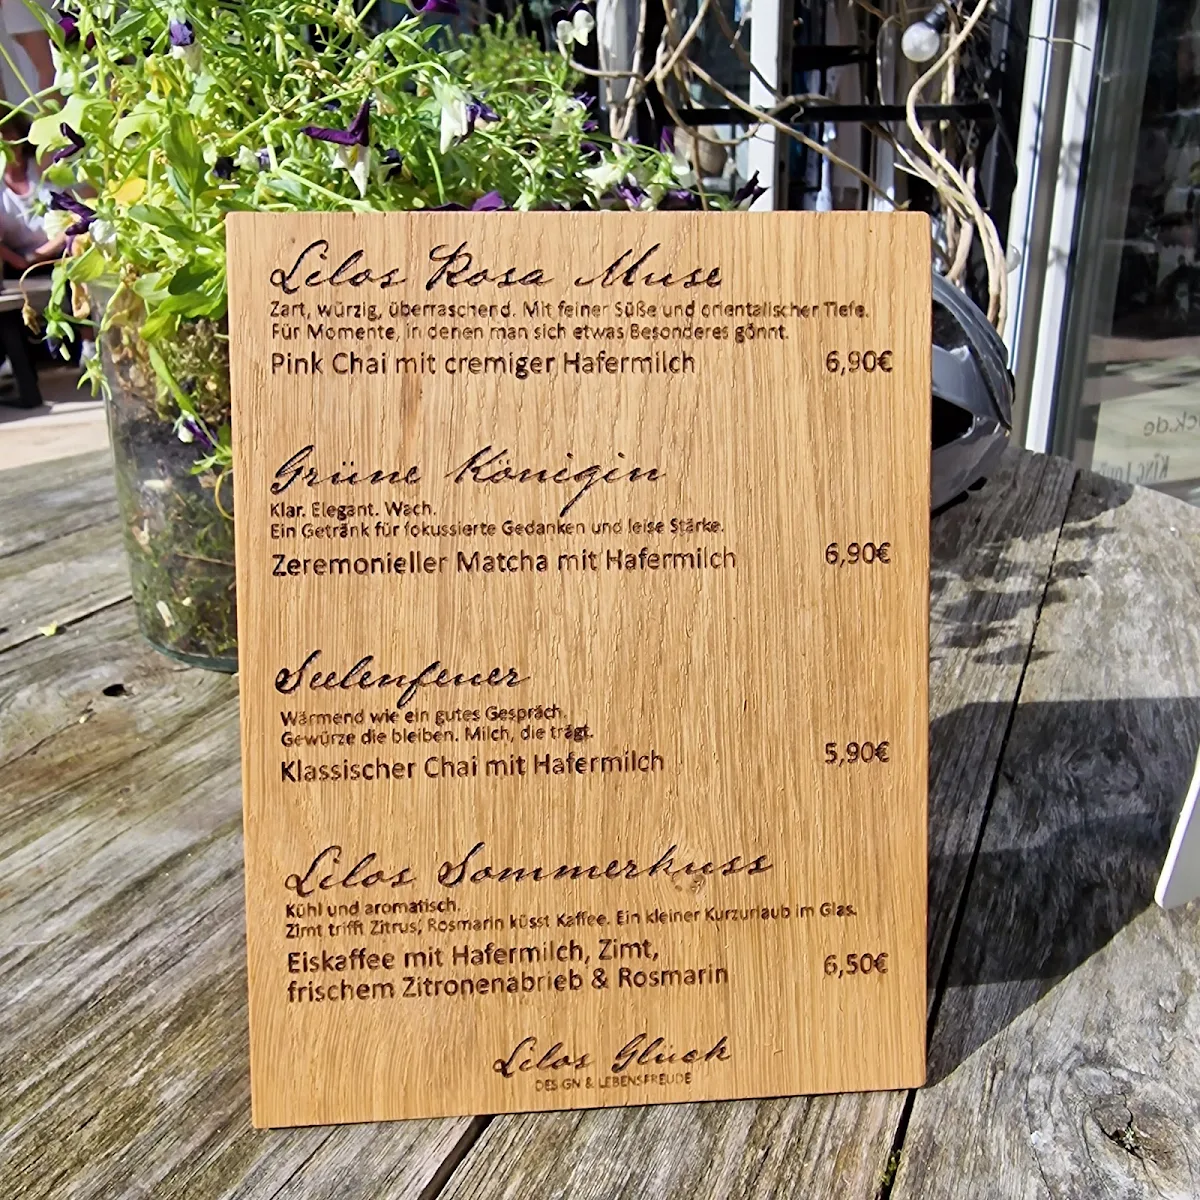 Lilos Rosa Muse
Zart, würzig, überraschend. Mit feiner Süße und orientalischer Tiefe.
Für Momente, in denen man sich etwas Besonderes gönnt.
Pink Chai mit cremiger Hafermilch 6,90€
Grüne Königin
Klar. Elegant. Wach.
Ein Getränk für fokussierte Gedanken und leise Stärke.
Zeremonieller Matcha mit Hafermilch 6,90€
Seelenfeuer
Wärmend wie ein gutes Gespräch.
Gewürze die bleiben. Milch, die trägt.
Klassischer Chai mit Hafermilch 5,90€
Lilos Sommerkuss
Kühl und aromatisch.
Zimt trifft Zitrus, Rosmarin küsst Kaffee. Ein kleiner Kurzurlaub im Glas.
Eiskaffee mit Hafermilch, Zimt,
frischem Zitronenabrieb & Rosmarin 6,50€
Lilos Glück
DESIGN & LEBENSFREUDE